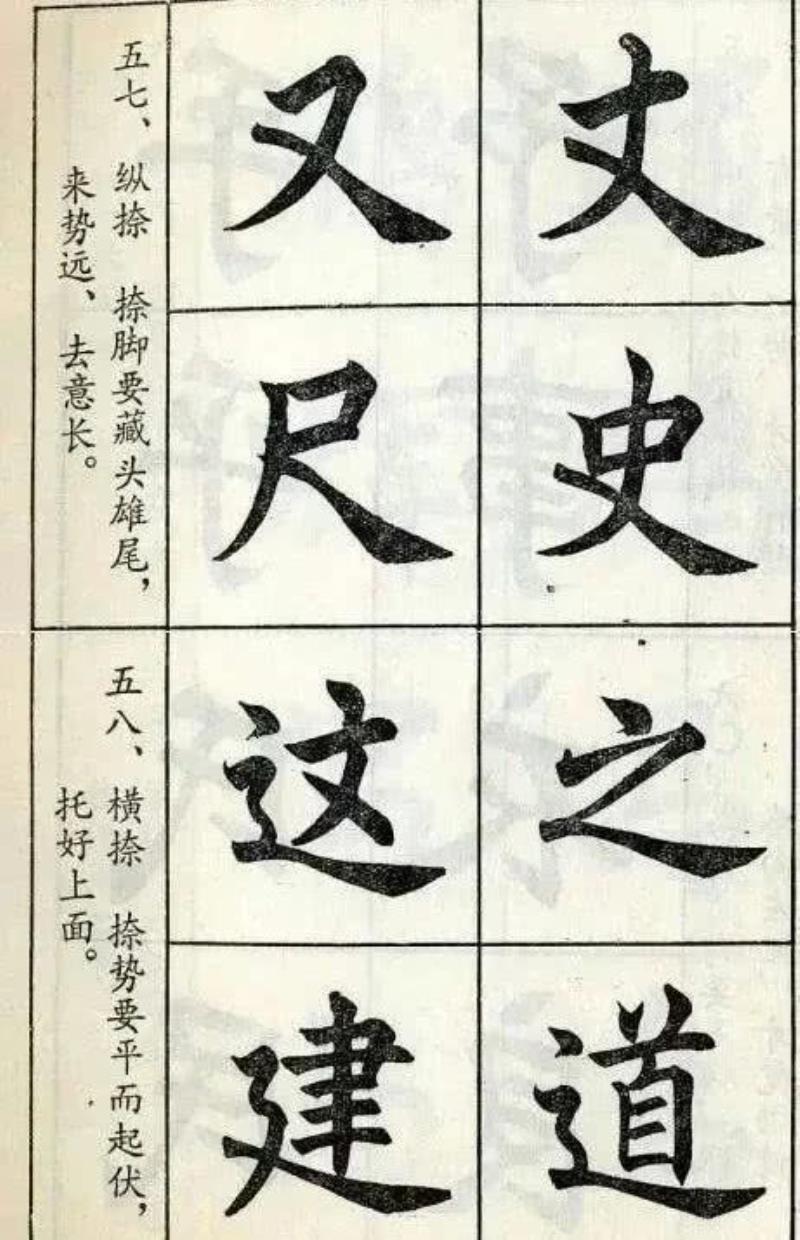 五七、纵捺 捺脚要藏头雄尾，
来势远、去意长。
又丈
尺史
五八、横捺 捺势要平而起伏，
托好上面。
这之
建道